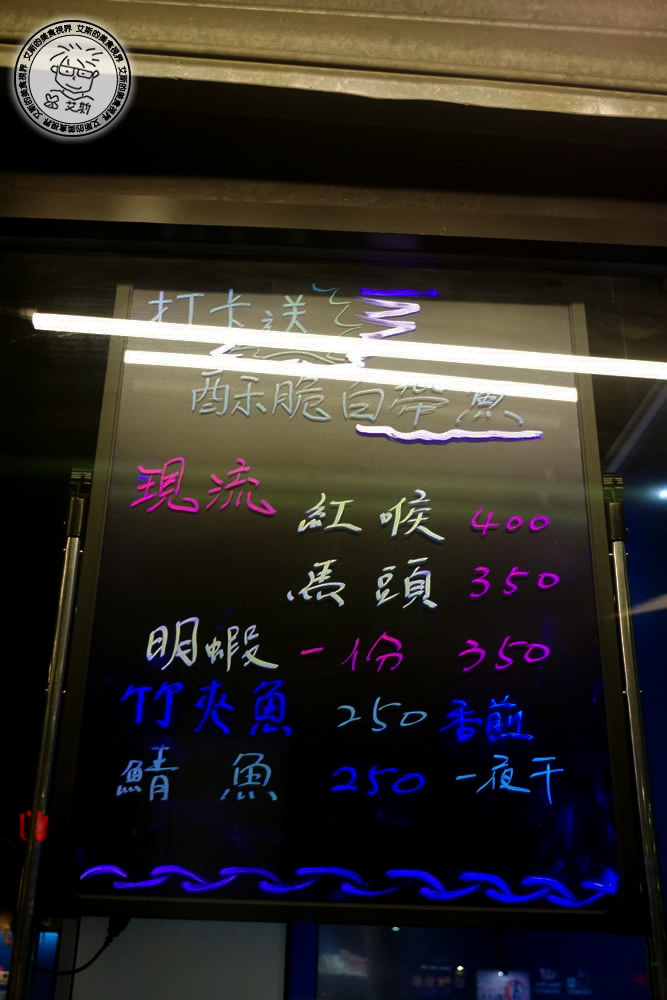 艾斯的美食視界 艾斯的美食視界 艾斯的美食視界 艾斯的美食視界
艾斯
打卡送
酥脆白帶魚
現流 紅喉 400
馬頭 350
明蝦 一份 350
竹夾魚 250 香煎
鯖魚 250 一夜干